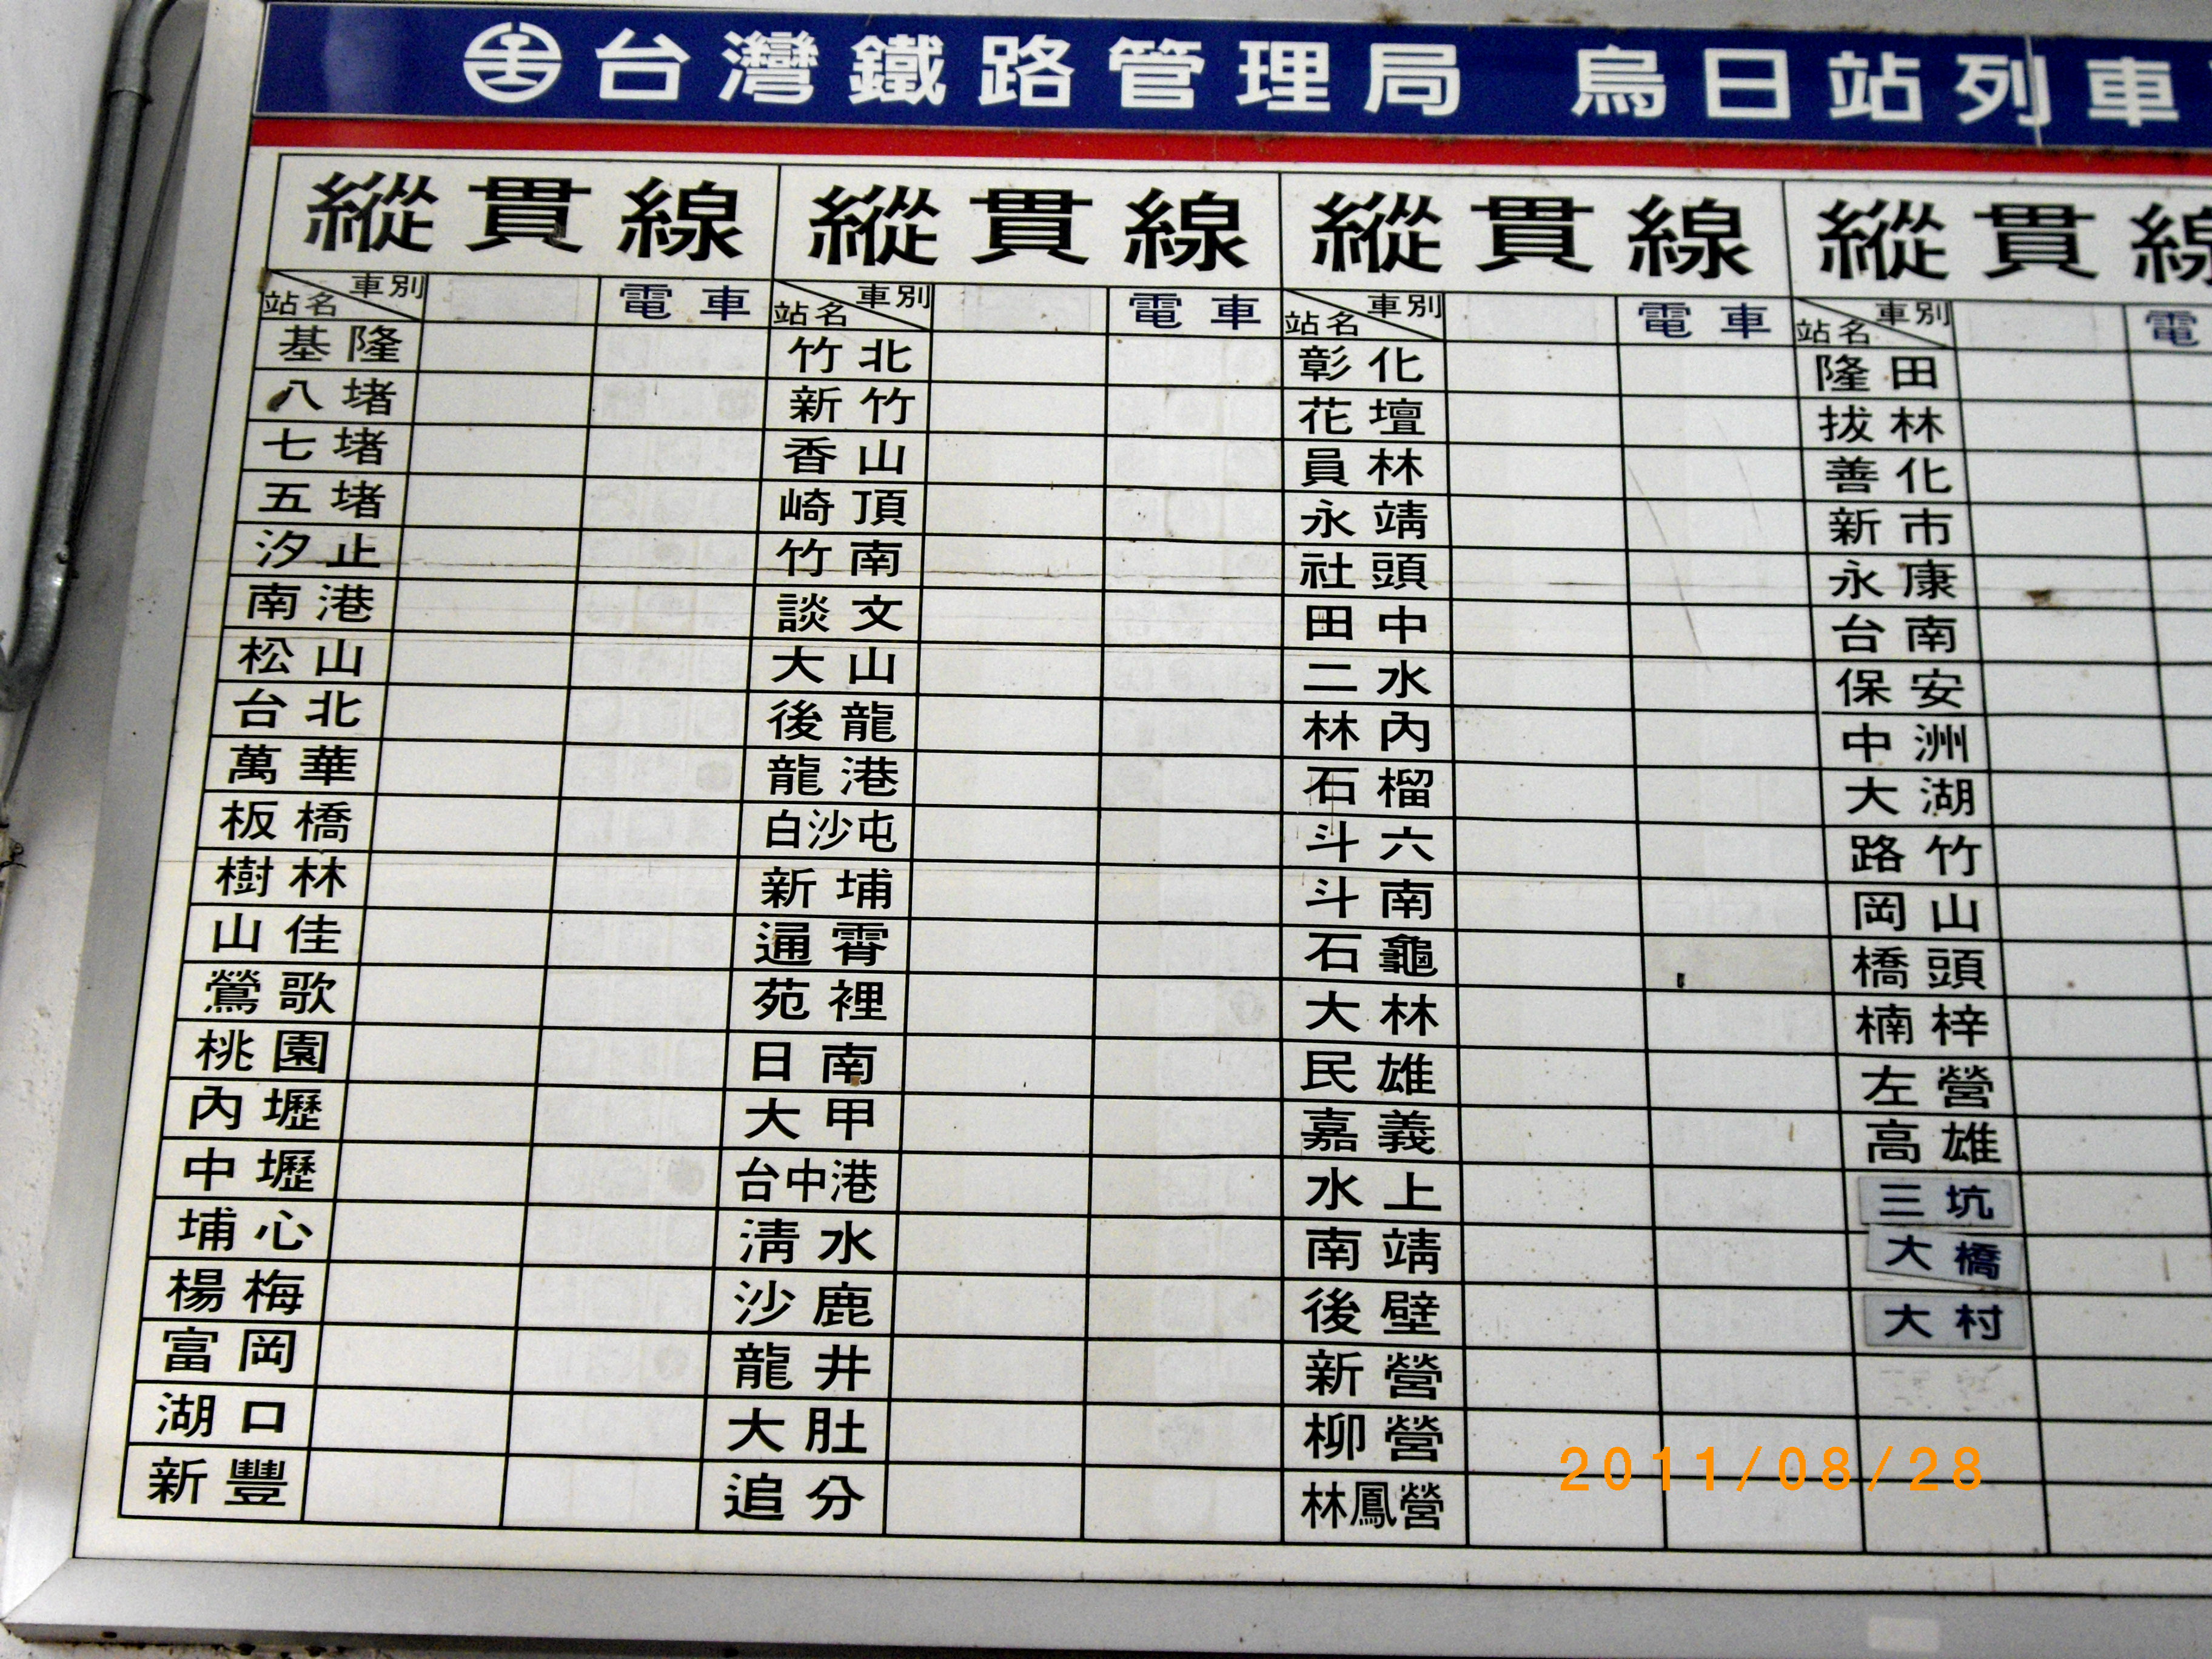 台灣鐵路管理局 烏日站列車
縱貫線 縱貫線 縱貫線 縱貫線
車別 站名 電車 車別 站名 電車 車別 站名 電車 車別 站名 電
基隆 竹北 彰化 隆田
八堵 新竹 花壇 拔林
七堵 香山 員林 善化
五堵 崎頂 永靖 新市
汐止 竹南 社頭 永康
南港 談文 田中 台南
松山 大山 二水 保安
台北 後龍 林內 中洲
萬華 龍港 石榴 大湖
板橋 白沙屯 斗六 路竹
樹林 新埔 斗南 岡山
山佳 通霄 石龜 橋頭
鶯歌 苑裡 大林 楠梓
桃園 日南 民雄 左營
內壢 大甲 嘉義 高雄
中壢 台中港 水上 三坑
埔心 清水 南靖 大橋
楊梅 沙鹿 後壁 大村
富岡 龍井 新營
湖口 大肚 柳營
新豐 追分 林鳳營
2011/08/28